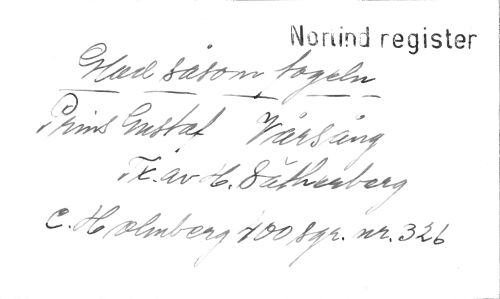 Norlind register
Glad såsom fogeln
Prins Gustaf Vårsång
Tx. av H. Sätherberg
C. Holmberg 700 sgr. nr. 326